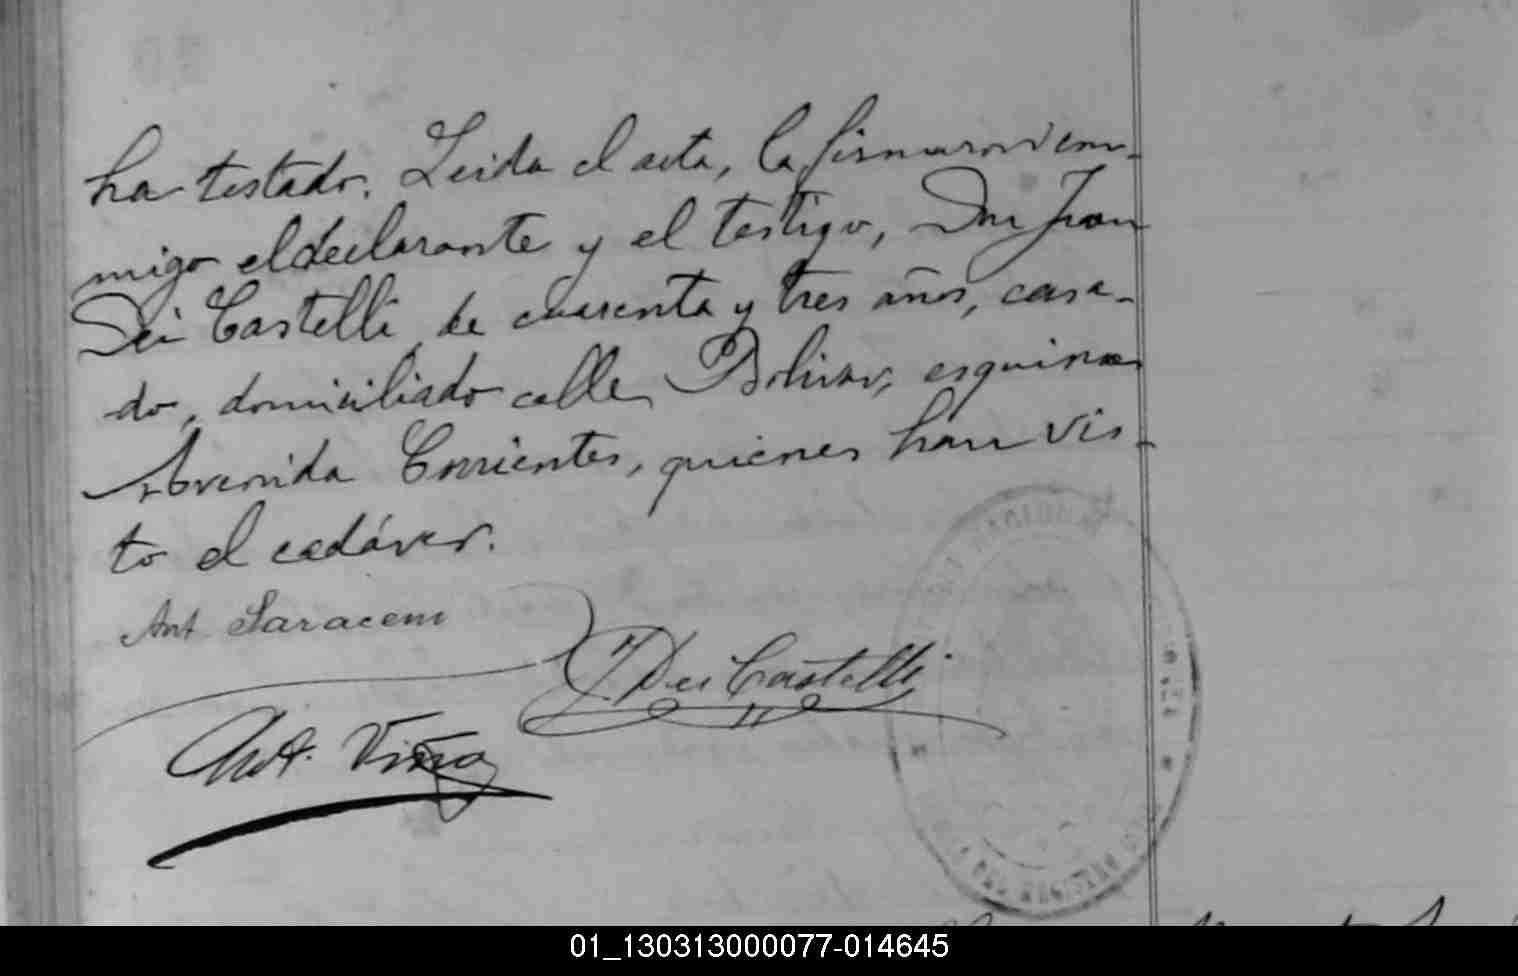 ha testado. Leida el acta, la firmaron con-
migo el declarante y el testigo, Don Juan
Dei Castelli, de cuarenta y tres años, casa-
do, domiciliado calle Bolivar, esquina
Avenida Corrientes, quienes han vis-
to el cadáver.
Ant. Saraceni
J Dei Castelli
Ant. Viña
DEL REGISTRO
01_130313000077-014645